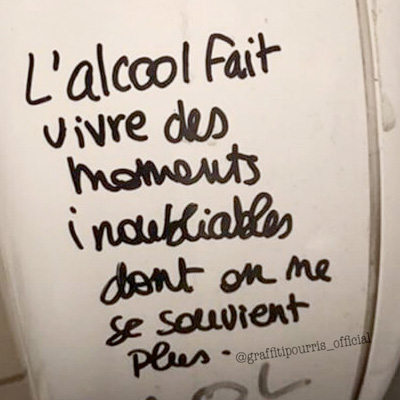 L'alcool fait
vivre des
moments
inoubliables
dont on ne
se souvient
plus.
@graffitipourris_official
LOL